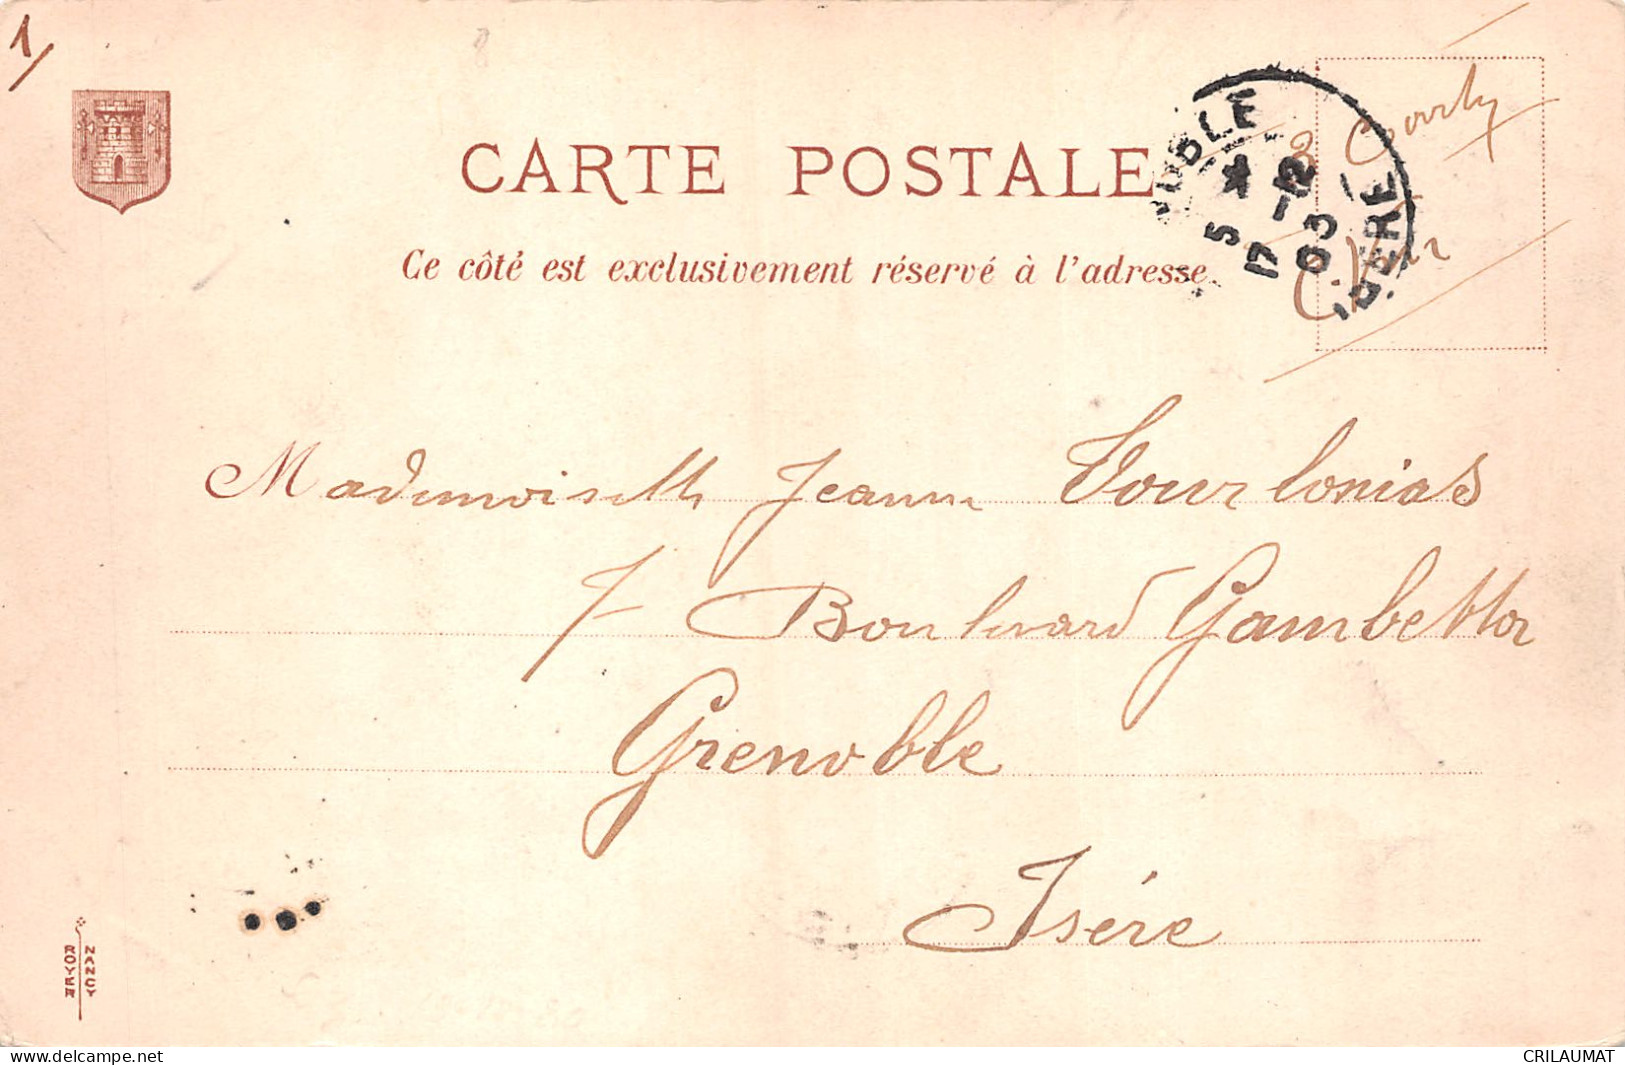 1/
CARTE POSTALE
Ce côté est exclusivement réservé à l'adresse
5
17 -12
03
ISERE
Mademoiselle Jeanne Tourlonias
7 Boulevard Gambetta
Grenoble
Isère
ROYER
NANCY
www.delcampe.net
CRILAUMAT